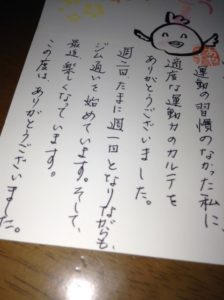 運動の習慣のなかった私に、
適度な運動力のカルテを
ありがとうございました。
週二回、たまに週一回となりながらも、
ジム通いを始めています。そして、
最近、楽しくなっています。
この度は、ありがとうございました。